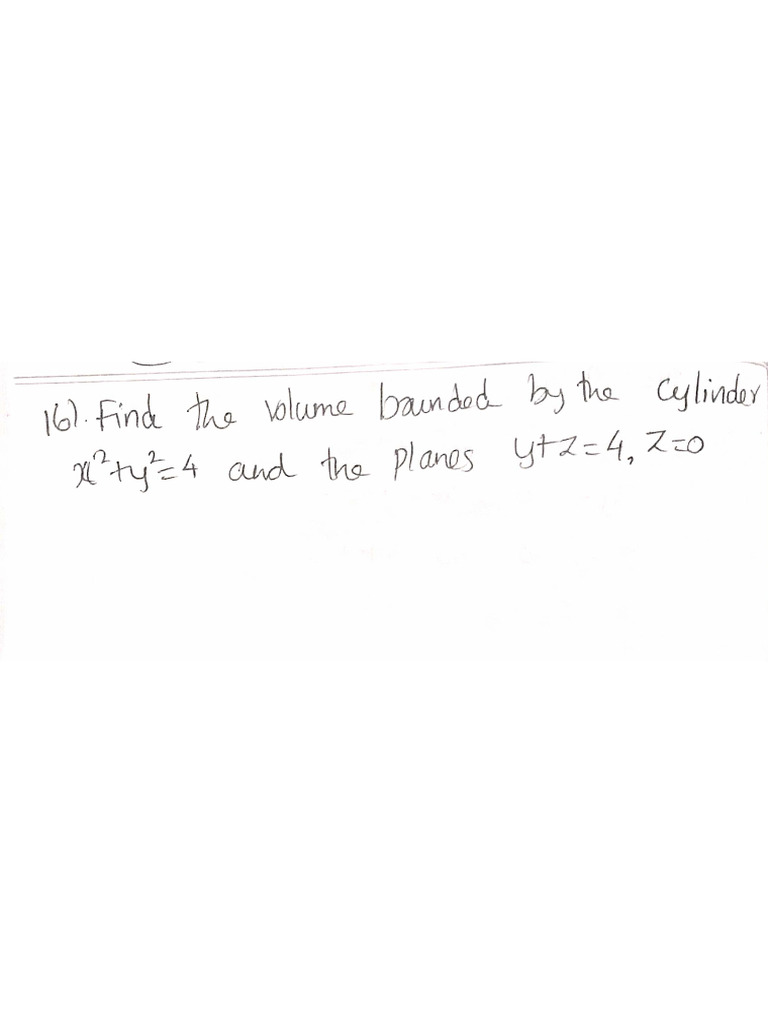 16). Find the volume bounded by the cylinder
x²+y²=4 and the planes y+z=4, z=0